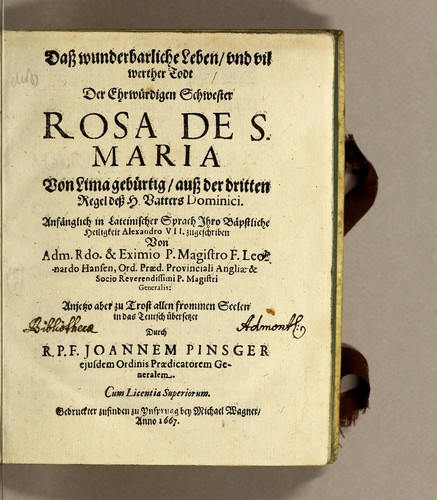 Daß wunderbarliche Leben/ vnd vil
werther Todt
Der Ehrwürdigen Schwester
ROSA DE S.
MARIA
Von Lima gebürtig/ auß der dritten
Regel deß H. Vatters Dominici.
Anfänglich in Lateinischer Sprach Ihro Bäpstliche
Heiligkeit Alexandro VII. zugeschriben
Von
Adm. Rdo. & Eximio P. Magistro F. Leo-
nardo Hansen, Ord. Præd. Provinciali Angliæ &
Socio Reverendissimi P. Magistri
Generalis:
Anjetzo aber zu Trost allen frommen Seelen
in das Teutsch übersetzet
Bibliotheca Admont.
Durch
R. P. F. JOANNEM PINSGER
ejusdem Ordinis Prædicatorem Ge-
neralem.
Cum Licentia Superiorum.
Gedruckter zufinden zu Ynsprugg bey Michael Wagner/
Anno 1667.